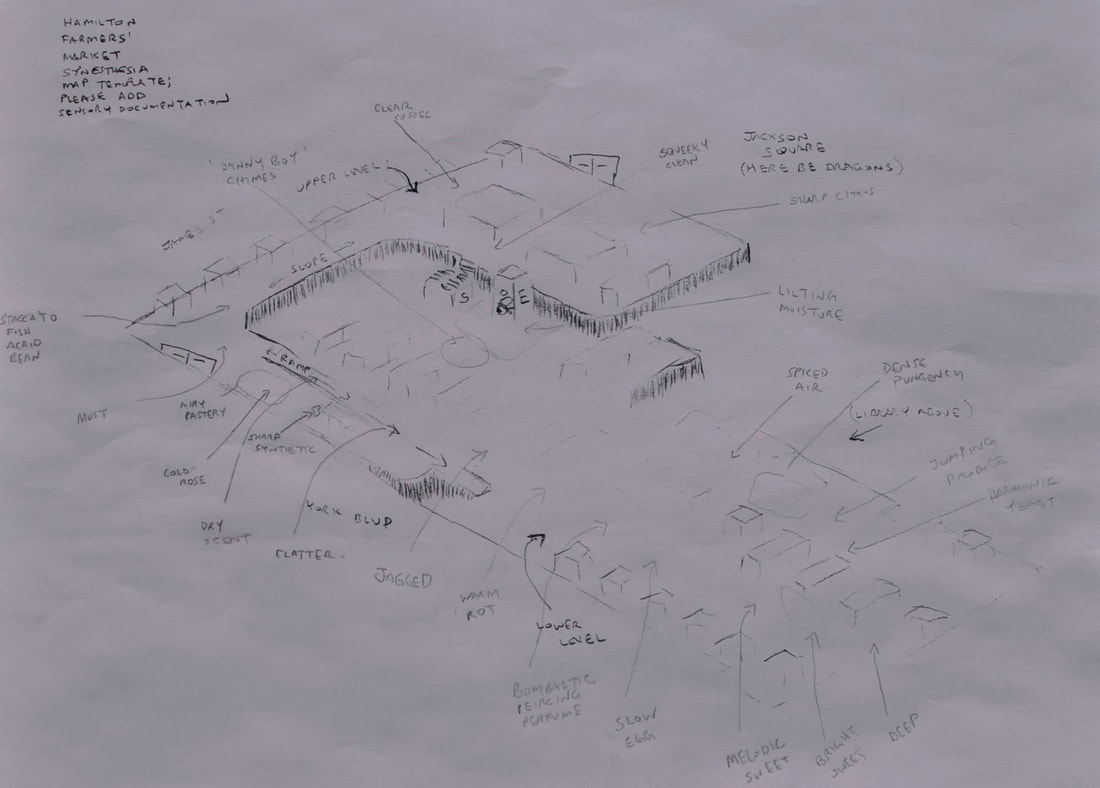 HAMILTON
FARMERS'
MARKET
SYNESTHESIA
MAP TEMPLATE;
PLEASE ADD
SENSORY DOCUMENTATION
CLEAR
COFFEE
'DANNY BOY'
CHIMES
UPPER LEVEL
SQUEEKY
CLEAN
JACKSON
SQUARE
(HERE BE DRAGONS)
SHARP CITRUS
JAMES ST
SLOPE
S
E
LILTING
MOISTURE
STACCATO
FISH
ACRID
BEAN
RAMP
MUST
AIRY
PASTERY
SHARP
SYNTHETIC
COLD-
ROSE
DRY
SCENT
YORK BLVD
CLATTER
JAGGED
WARM
ROT
LOWER
LEVEL
SPICED
AIR
DENSE
PUNGENCY
(LIBRARY ABOVE)
JUMPING
PRODUCE
HARMONIC
YEAST
BOMBASTIC
PEIRCING
PERFUME
SLOW
EGG
MELODIC
SWEET
BRIGHT
SWEET
DEEP